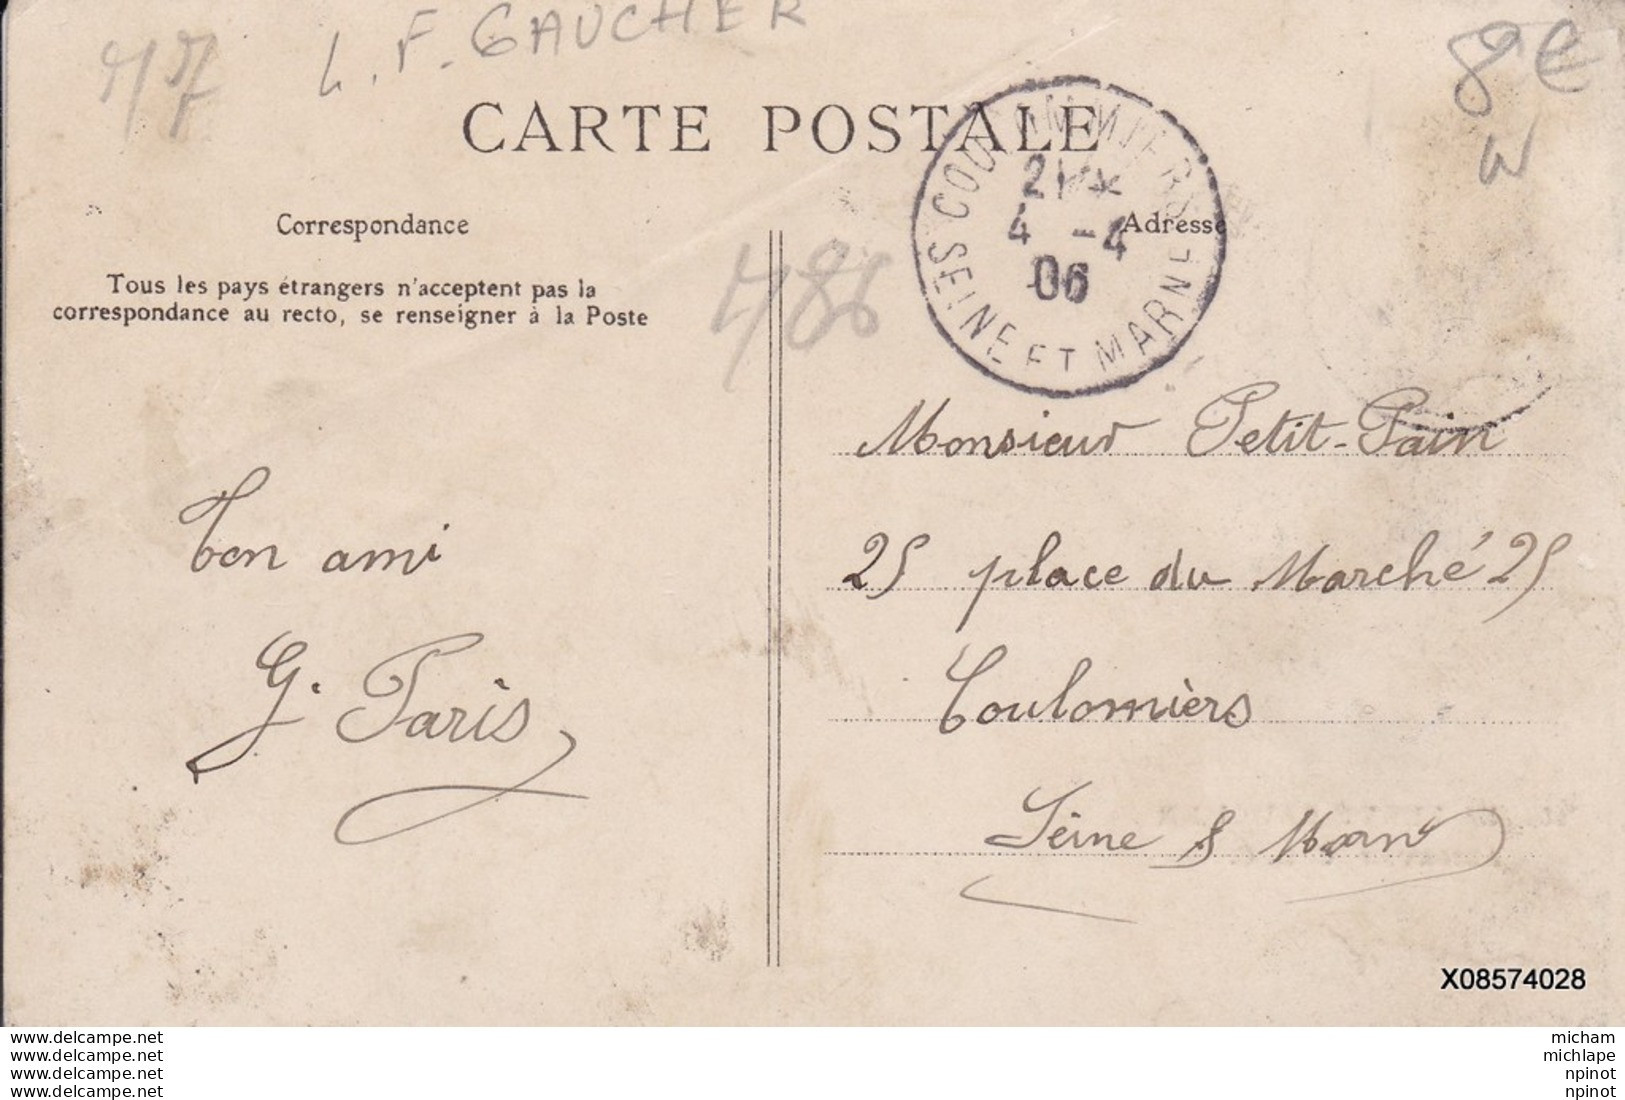 L. F. GAUCHER
8€
W
CARTE POSTALE
COULOMMIERS
21
4 -4
06
SEINE ET MARNE
Correspondance
Adresse
Tous les pays étrangers n'acceptent pas la
correspondance au recto, se renseigner à la Poste
486
Monsieur Petit-Pain
25 place du Marché 25
Coulomièrs
Seine & Marne
Ton ami
G. Paris
X08574028
www.delcampe.net micham
www.delcampe.net michlape
www.delcampe.net npinot
www.delcampe.net npinot